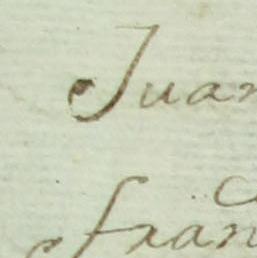 Juan
fran